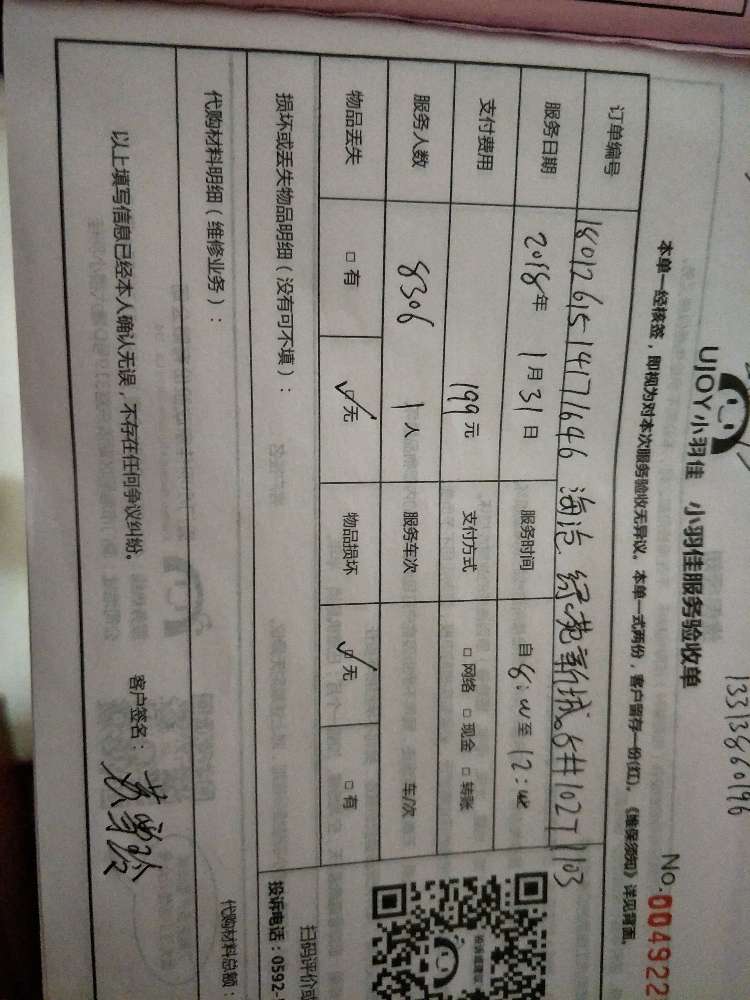 13313860196
UJOY小羽佳 小羽佳服务验收单
No.004922
本单一经核签，即视为对本次服务验收无异议。本单一式两份，客户留存一份(红)。《维保须知》详见背面。
订单编号 1801261514171646 海沧 绿苑新城。6#102T 1103
服务日期 2018年 1月31日 服务时间 自8:00至12:00
支付费用 199元 支付方式 □网络 □现金 □转账
服务人数 8306 1人 服务车次 车/次
物品丢失 □有 ☑无 物品损坏 ☑无 □有
损坏或丢失物品明细（没有可不填）：
扫码评价或
投诉电话：0592-
代购材料明细（维修业务）：
代购材料总额：
以上填写信息已经本人确认无误，不存在任何争议纠纷。 客户签名：